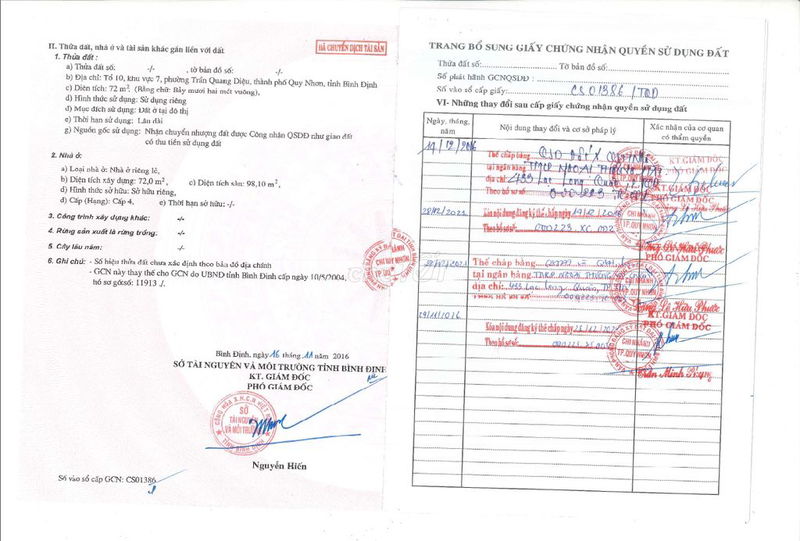 II. Thửa đất, nhà ở và tài sản khác gắn liền với đất
ĐÃ CHUYỂN DỊCH TÀI SẢN
1. Thửa đất :
a) Thửa đất số: -/- , tờ bản đồ số: -/-
b) Địa chỉ: Tổ 10, khu vực 7, phường Trần Quang Diệu, thành phố Quy Nhơn, tỉnh Bình Định
c) Diện tích: 72 m², (Bằng chữ: Bảy mươi hai mét vuông),
d) Hình thức sử dụng: Sử dụng riêng
đ) Mục đích sử dụng: Đất ở tại đô thị
e) Thời hạn sử dụng: Lâu dài
g) Nguồn gốc sử dụng: Nhận chuyển nhượng đất được Công nhận QSDĐ như giao đất
có thu tiền sử dụng đất
2. Nhà ở :
a) Loại nhà ở: Nhà ở riêng lẻ,
b) Diện tích xây dựng: 72,0 m², c) Diện tích sàn: 98,10 m²,
d) Hình thức sở hữu: Sở hữu riêng,
đ) Cấp (Hạng): Cấp 4, e) Thời hạn sở hữu: -/-
3. Công trình xây dựng khác: -/-
4. Rừng sản xuất là rừng trồng: -/-
5. Cây lâu năm: -/-
6. Ghi chú: - Số hiệu thửa đất chưa xác định theo bản đồ địa chính
- GCN này thay thế cho GCN do UBND tỉnh Bình Định cấp ngày 10/5/2004,
hồ sơ gốcsố: 11913 ./.
CHI NHÁNH
TP.QUY NHƠN
Bình Định, ngày 16 tháng 11 năm 2016
SỞ TÀI NGUYÊN VÀ MÔI TRƯỜNG TỈNH BÌNH ĐỊNH
KT. GIÁM ĐỐC
PHÓ GIÁM ĐỐC
SỞ
TÀI NGUYÊN
VÀ MÔI TRƯỜNG
Nguyễn Hiến
Số vào sổ cấp GCN: CS01386
TRANG BỔ SUNG GIẤY CHỨNG NHẬN QUYỀN SỬ DỤNG ĐẤT
Thửa đất số: Tờ bản đồ số:
Số phát hành GCNQSDĐ :
Số vào sổ cấp giấy: CS01386/TQD
VI- Những thay đổi sau cấp giấy chứng nhận quyền sử dụng đất
Ngày, tháng, năm
Nội dung thay đổi và cơ sở pháp lý
Xác nhận của cơ quan có thẩm quyền
Thế chấp bằng
KT.GIÁM ĐỐC
tại ngân hàng TMCP NGOẠI THƯƠNG
địa chỉ: 433 Lạc Long Quân
PHÓ GIÁM ĐỐC
Theo hồ sơ số:
Xóa nội dung đăng ký thế chấp ngày 19/12/2016
Theo hồ sơ số: 000223.XC.002
CHI NHÁNH
TP.QUY NHƠN
PHÓ GIÁM ĐỐC
Thế chấp bằng
tại ngân hàng TMCP NGOẠI THƯƠNG
địa chỉ: 433 Lạc Long Quân
Lê Hữu Phước
KT.GIÁM ĐỐC
PHÓ GIÁM ĐỐC
Xóa nội dung đăng ký thế chấp ngày
Theo hồ sơ số:
CHI NHÁNH
TP.QUY NHƠN
Trần Minh